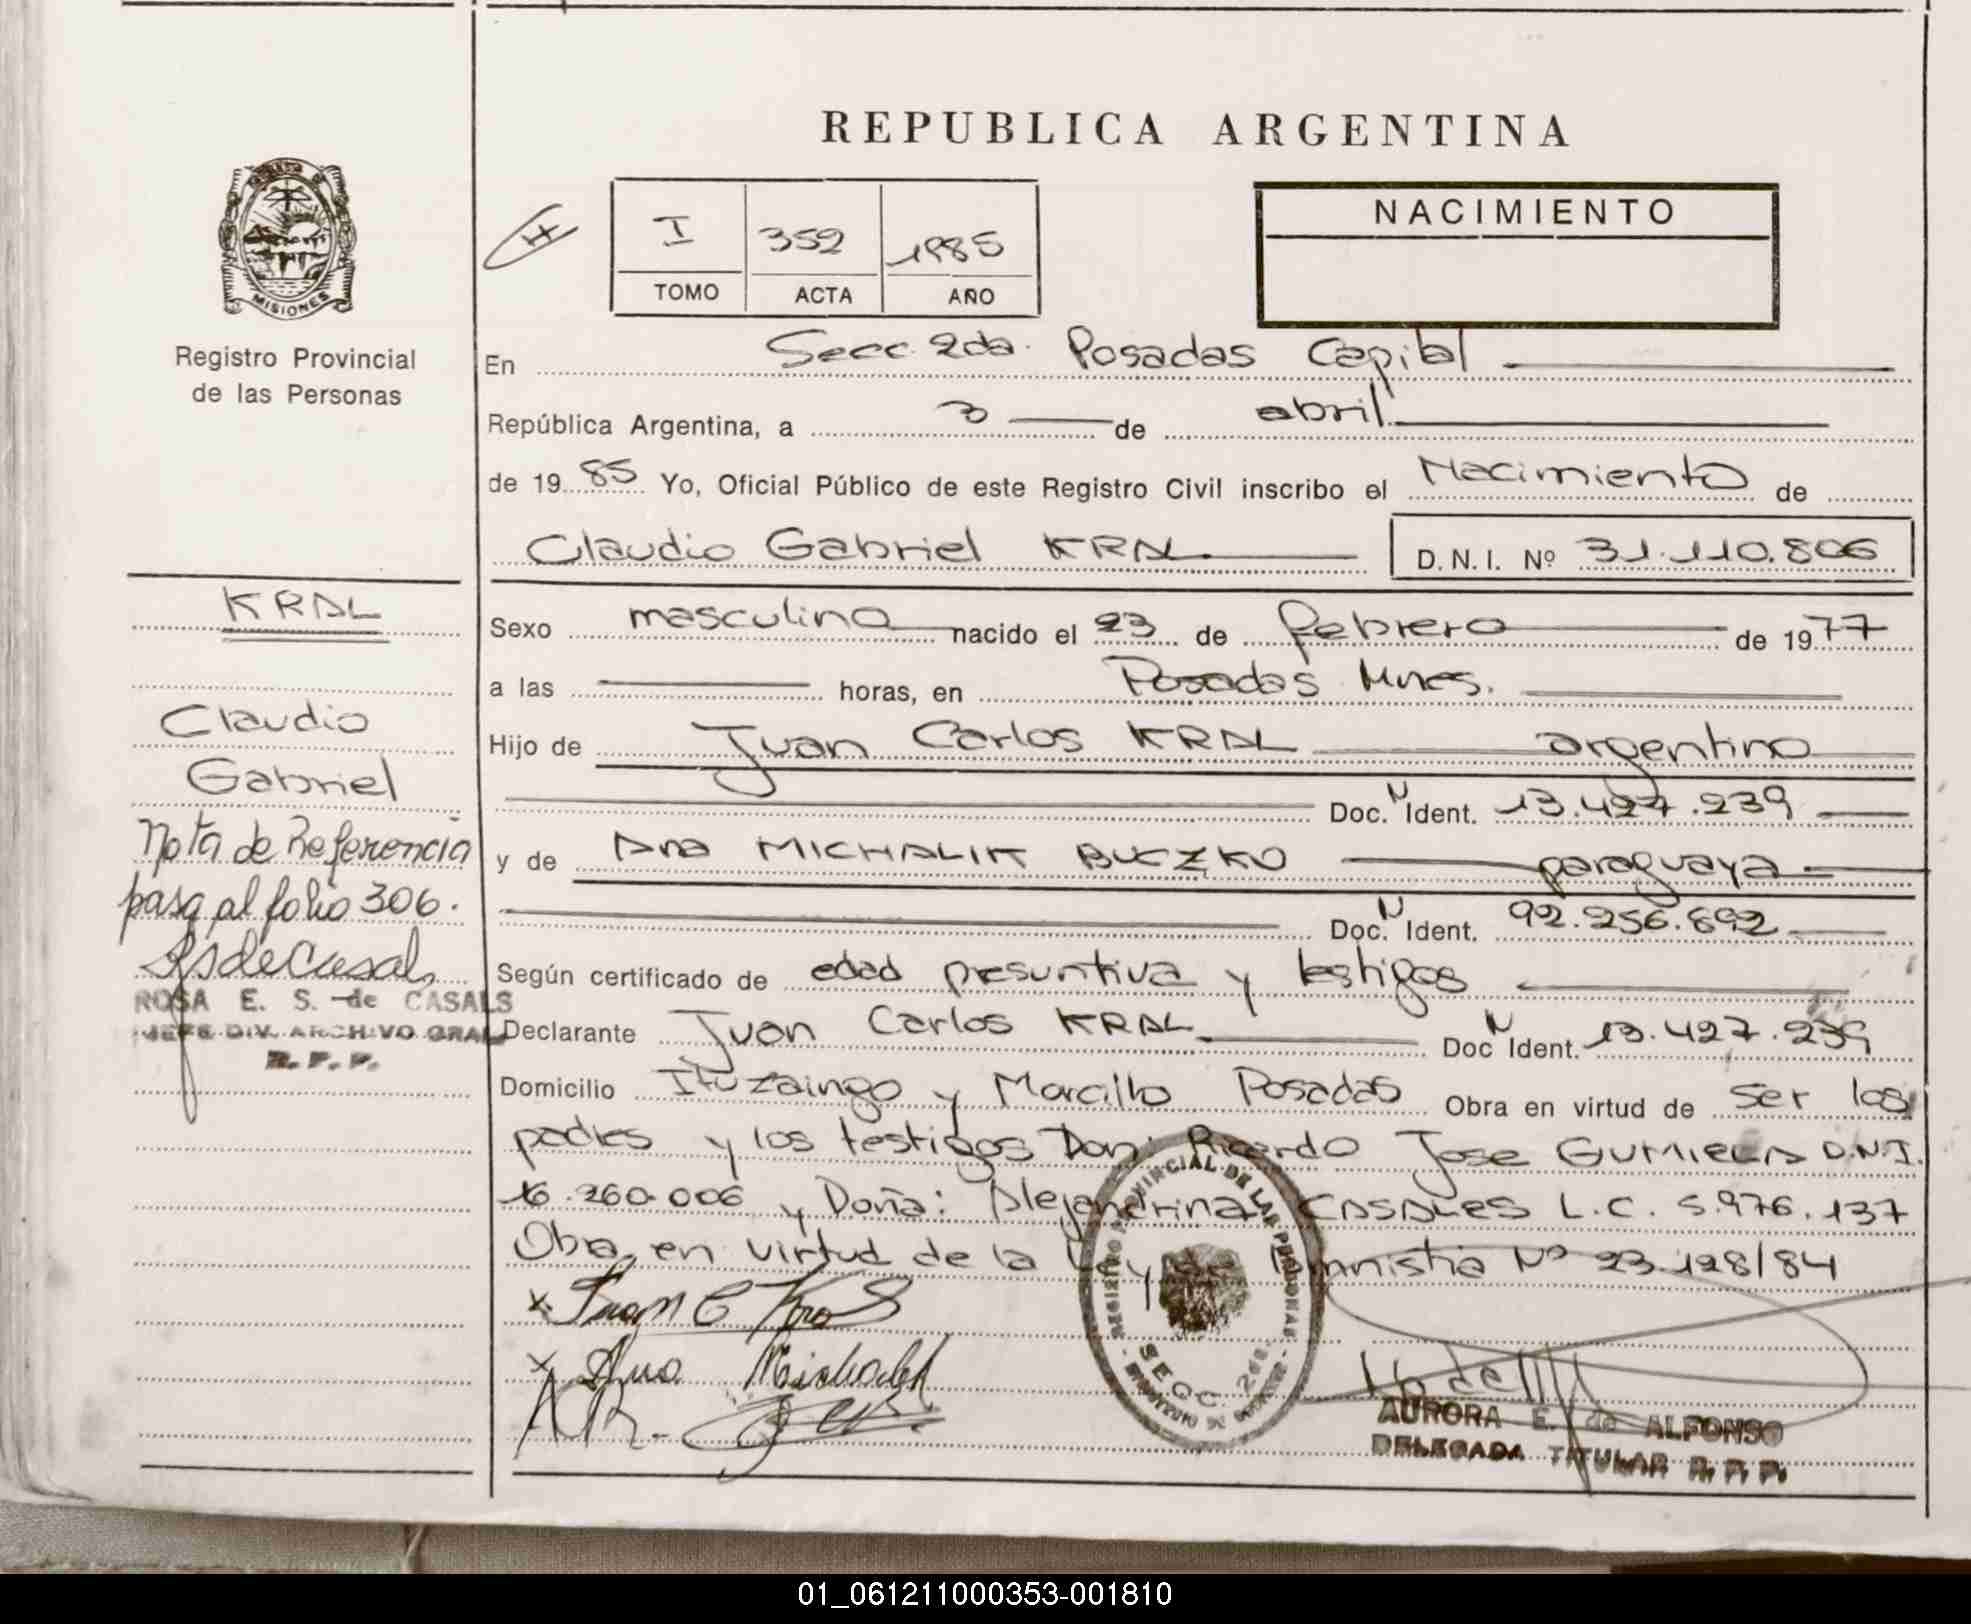 REPUBLICA ARGENTINA
MISIONES
Registro Provincial
de las Personas
H
I 352 1985
TOMO ACTA AÑO
NACIMIENTO
En Secc. 2da. Posadas Capital
República Argentina, a 3 de abril
de 1985 Yo, Oficial Público de este Registro Civil inscribo el Nacimiento de
Claudio Gabriel KRAL D.N.I. Nº 31.110.806
KRAL
Claudio
Gabriel
Nota de Referencia
pasa al folio 306.
ROSA E. S. de CASALS
JEFE DIV. ARCHIVO GRAL
R. P. P.
Sexo masculino nacido el 23 de febrero de 1977
a las horas, en Posadas Mnes.
Hijo de Juan Carlos KRAL argentino
Doc. N Ident. 13.427.239
y de Ana MICHALIK BUCZKO paraguaya
Doc. N Ident. 92.256.892
Según certificado de edad presuntiva y testigos
Declarante Juan Carlos KRAL Doc N Ident. 13.427.239
Domicilio Ituzaingo y Morcillo Posadas Obra en virtud de ser los
padres y los testigos Don: Ricardo Jose GUMIELA D.N.I.
16.260.006 y Doña: Alejandrina CASALES L.C. 5.976.137
Obra en virtud de la Ley de Amnistia Nº 23.128/84
x Juan C Kral
x Ana Michalik
REGISTRO PROVINCIAL DE LAS PERSONAS
SECC. 2da.
AURORA E. de ALFONSO
DELEGADA TITULAR R. P. P.
01_061211000353-001810